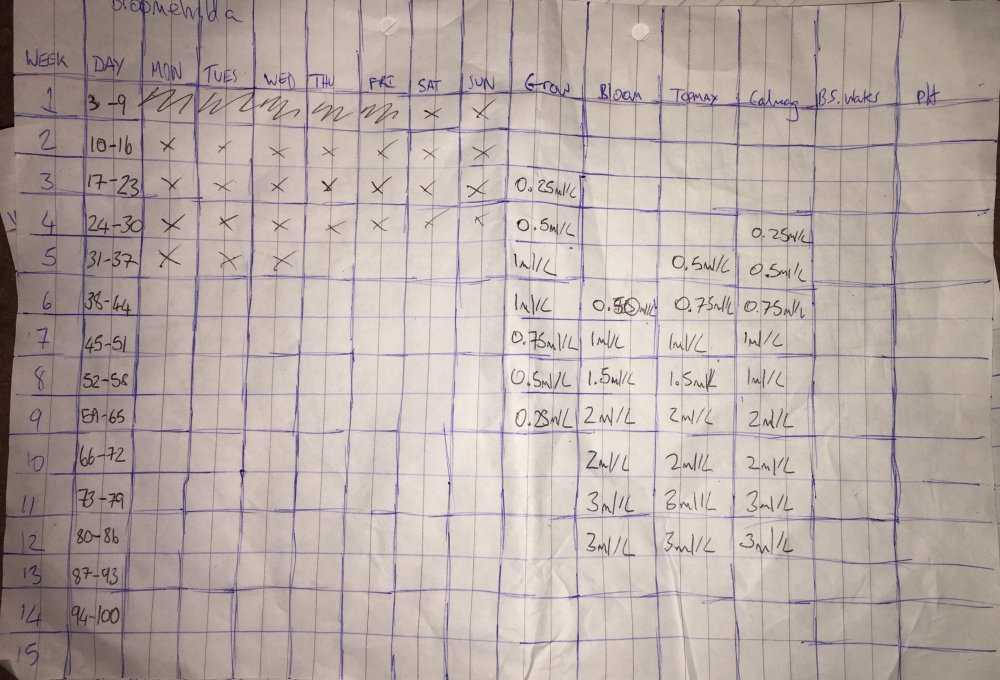 WEEK DAY MON TUES WED THU FRI SAT SUN Grow Bloom TOPMAX Calmag B.S. Water pH
1 3-9 X X
2 10-16 X X X X X X X
3 17-23 X X X X X X X 0.25ml/L
4 24-30 X X X X X X X 0.5ml/L 0.25ml/L
5 31-37 X X X 1ml/L 0.5ml/L 0.5ml/L
6 38-44 1ml/L 0.75ml/L 0.75ml/L
7 45-51 0.75ml/L 1ml/L 1ml/L 1ml/L
8 52-58 0.5ml/L 1.5ml/L 1.5ml/L 1ml/L
9 59-65 0.25ml/L 2ml/L 2ml/L 2ml/L
10 66-72 2ml/L 2ml/L 2ml/L
11 73-79 3ml/L 3ml/L 3ml/L
12 80-86 3ml/L 3ml/L 3ml/L
13 87-93
14 94-100
15